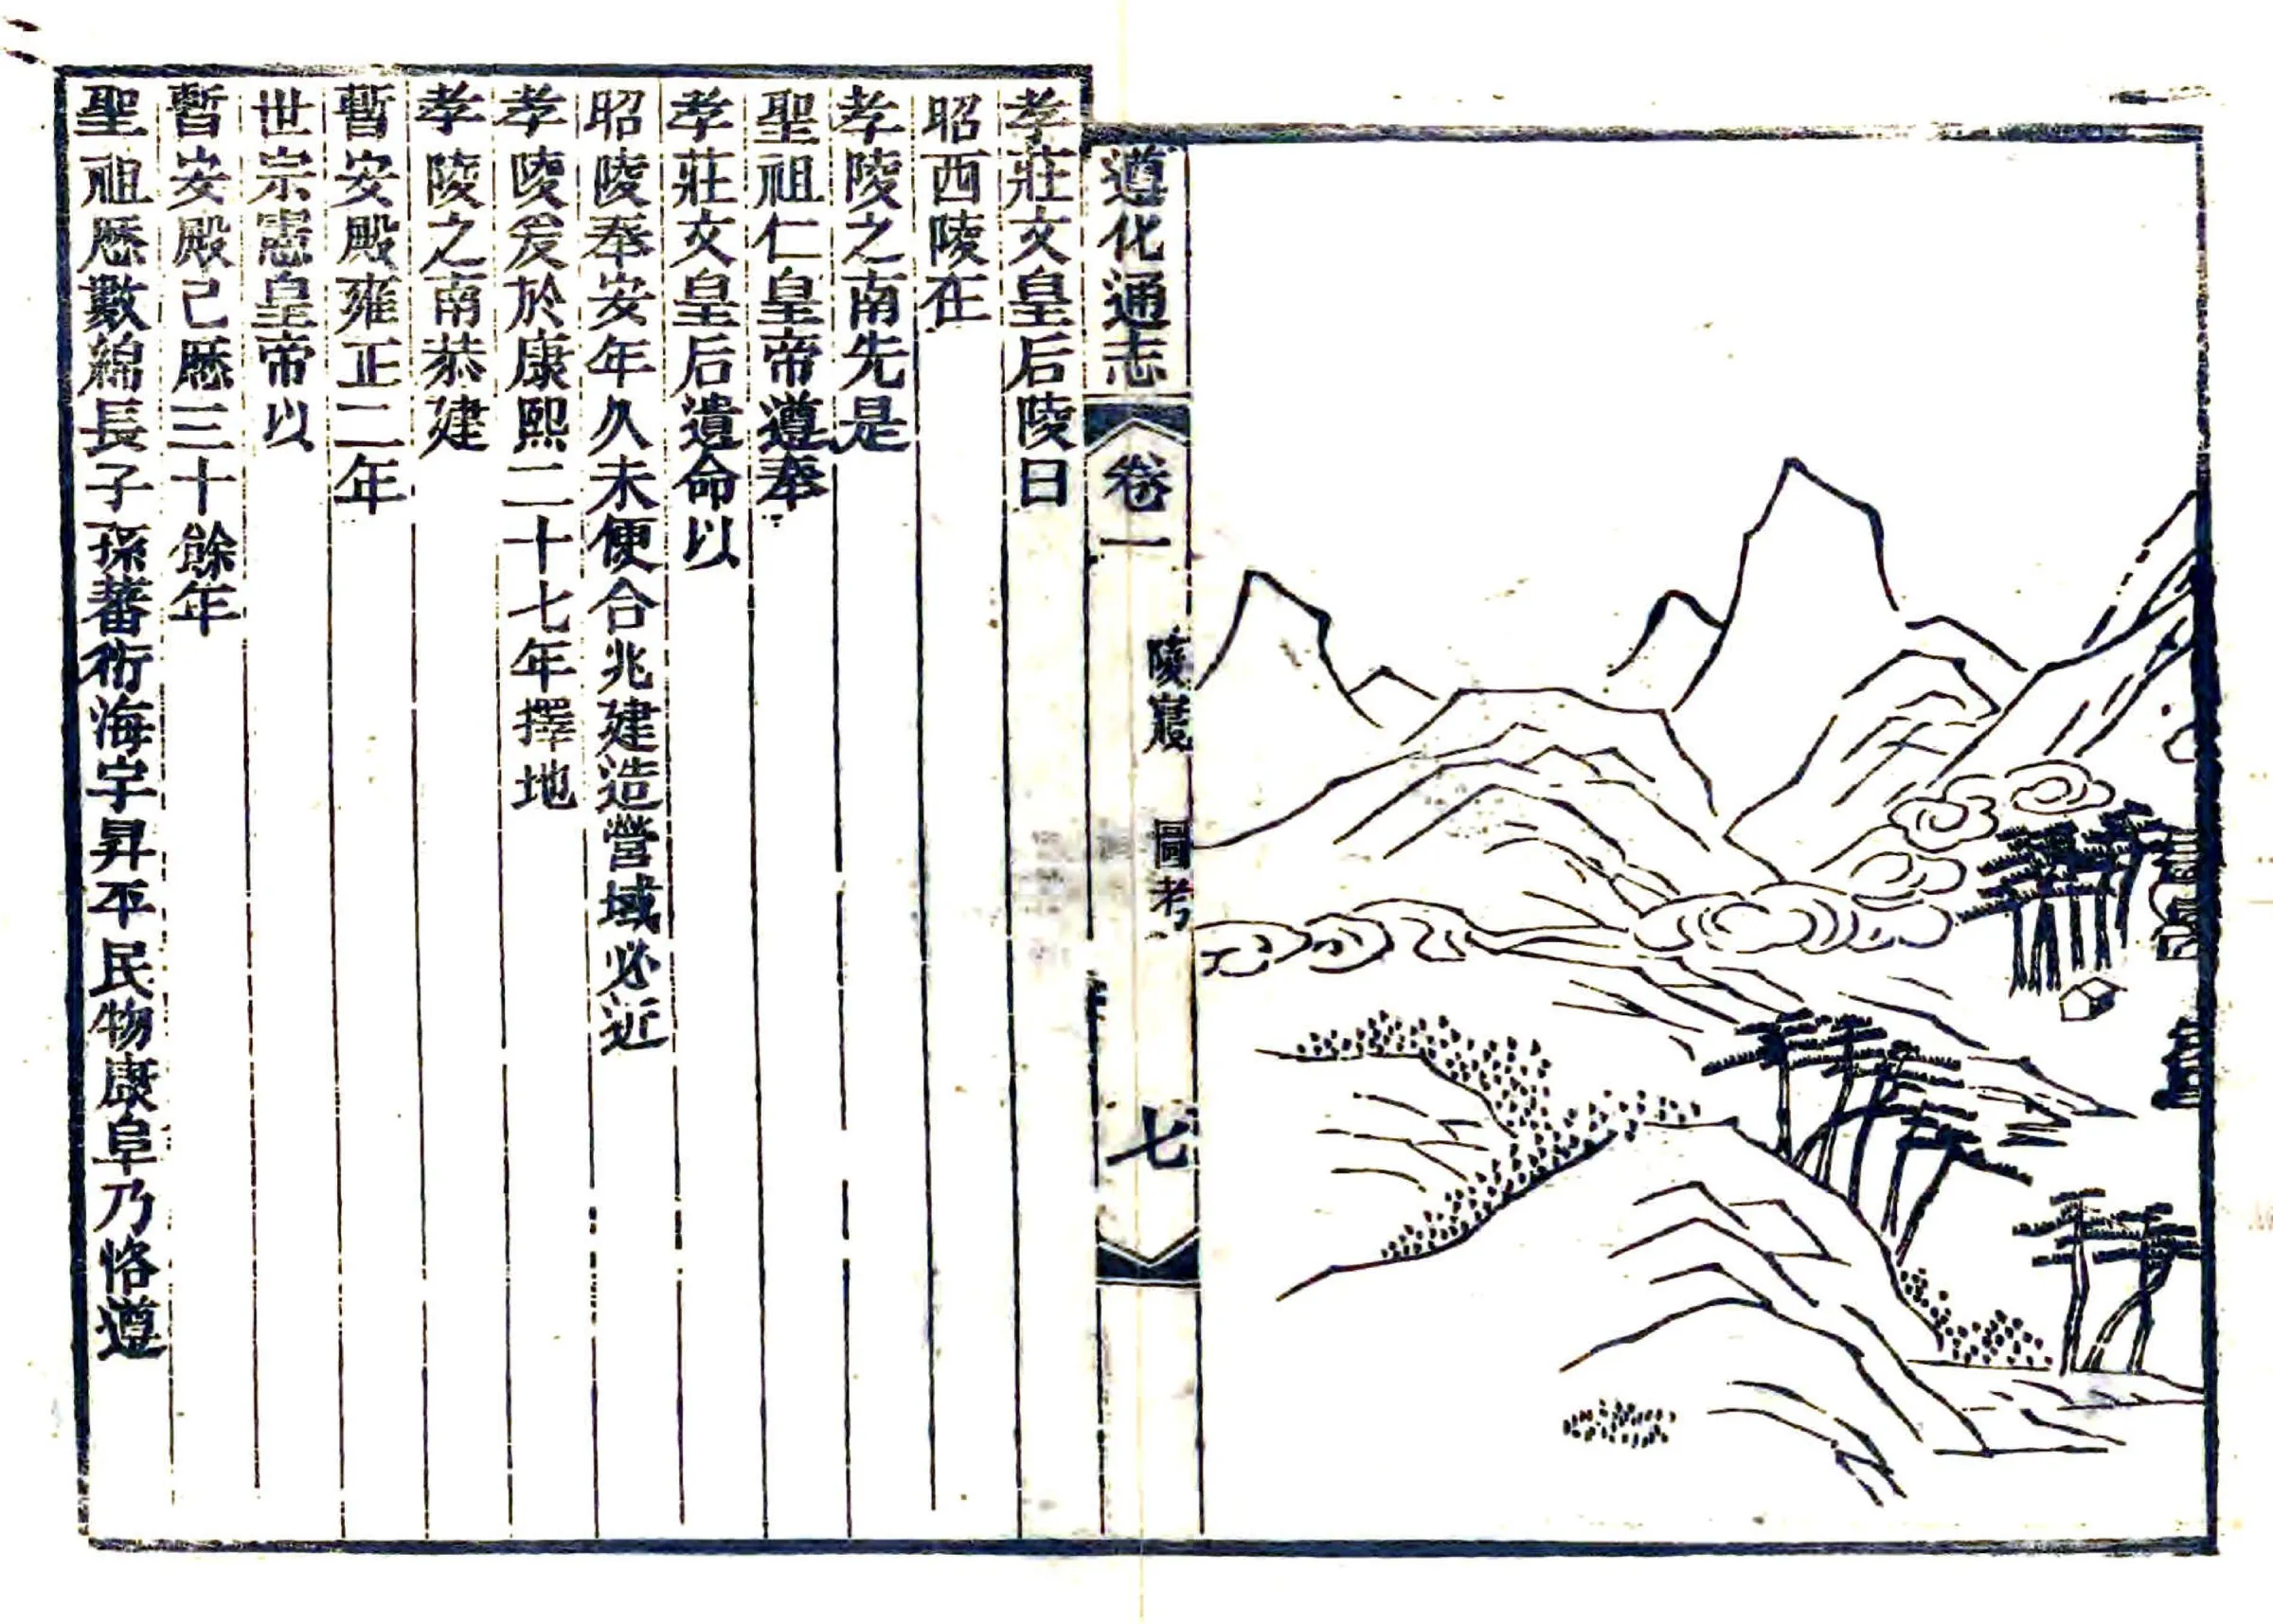 遵化通志
卷一
陵寢
圖考
七
孝莊文皇后陵曰
昭西陵在
孝陵之南先是
聖祖仁皇帝遵奉
孝莊文皇后遺命以
昭陵奉安年久未便合兆建造營域必近
孝陵爰於康熙二十七年擇地
孝陵之南恭建
暫安殿雍正二年
世宗憲皇帝以
暫安殿已歷三十餘年
聖祖歷數綿長子孫蕃衍海宇昇平民物康阜乃恪遵